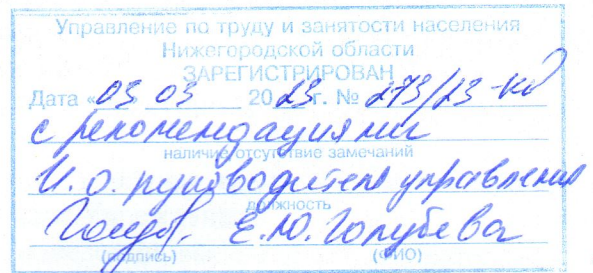 Управление по труду и занятости населения
Нижегородской области
ЗАРЕГИСТРИРОВАН
Дата «03» 03 2023г. № 273/23-КД
с рекомендациями
наличие/отсутствие замечаний
И.о. руководителя управления
должность
Е.Ю. Голубева
(подпись) (ФИО)